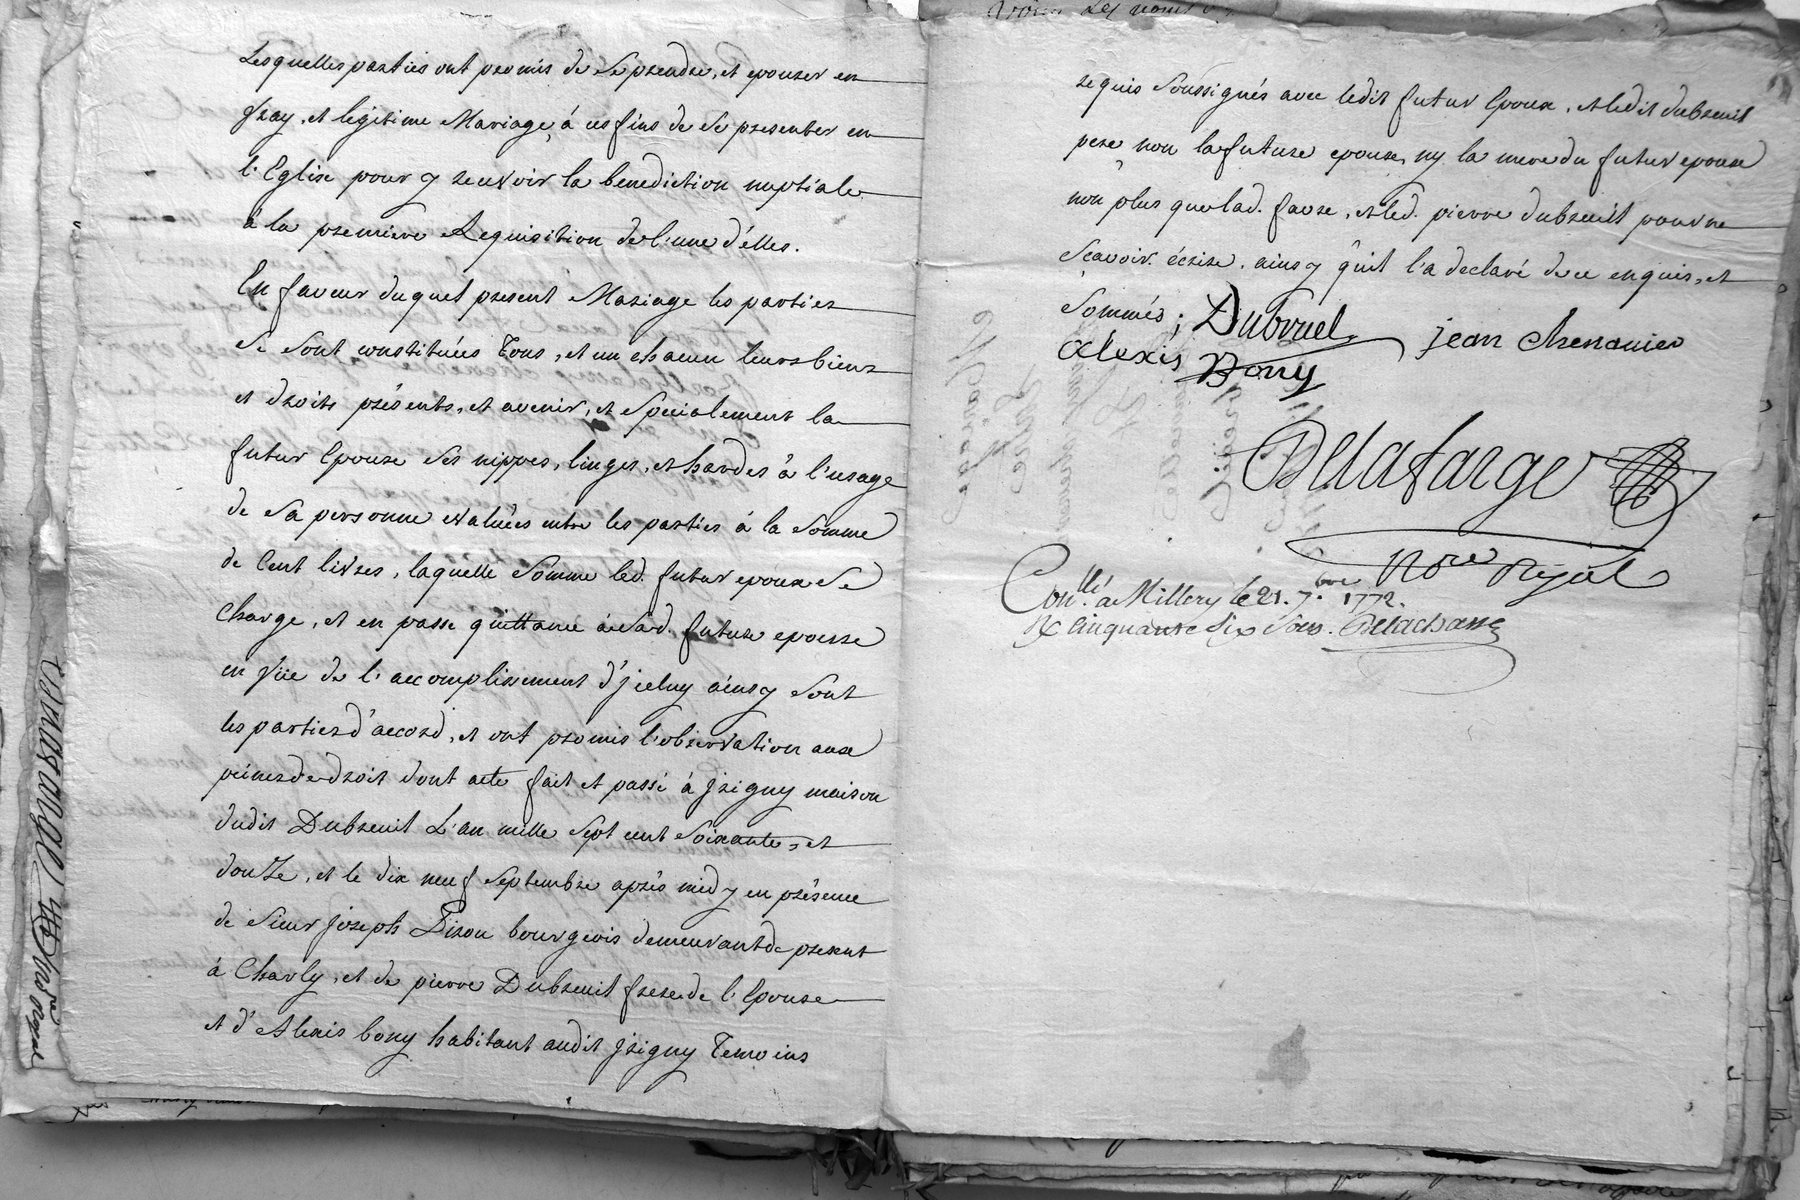 Lesquelles parties ont promis de se prendre, et epouser en
vray, et legitime Mariage, á ces fins de se presenter en
l'Eglise pour y recevoir la benediction nuptiale
á la premiere Requisition de l'une d'elles.
En faveur duquel present Mariage les parties
se sont constituées tous, et un chacun leurs biens
et droits présents, et avenir, et specialement la
futur Epouse ses nippes, linges, et hardes á l'usage
de sa personne evaluées entre les parties á la somme
de Cent livres, laquelle somme led. futur epoux se
Charge, et en passe quittance á sad. future epouse
en vüe de l'accomplissement d'jceluy ainsy sont
les parties d'accord, et ont promis l'observation aux
peines de droit dont acte fait et passé á jrigny maison
dudit Dubreuil L'an mille sept cent soixante, et
douze, et le dix neuf septembre aprés midy en présence
de sieur joseph bourgeois demeurant de present
á Charly, et de pierre Dubreuil frere de l'Epouse
et d'Alexis bony habitant audit jrigny Temoins
requis soussignés avec ledit futur Epoux, et ledit dubreuil
pere non la future epouse, ny la mere du futur epoux
non plus que lad. faure, et led. pierre dubreuil pour ne
sçavoir écrire, ainsy qu'il l'a declaré de ce enquis, et
sommés; Dubruel jean chenavier
alexis Bony
Delafarge
Nore Royal
Conllé á Millery le 21. 7.bre 1772.
R cinquante six sous. Delachasse